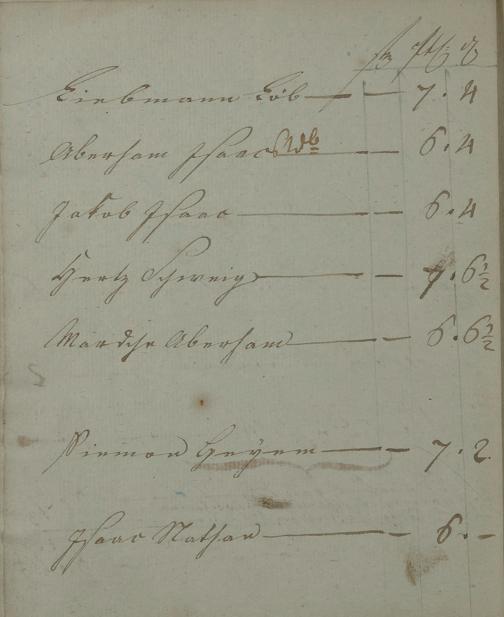 Liebmann Löb — — 7 . 4
Aberham Isaac — — 6 . 4
Jakob Isaac — — 6 . 4
Hertz Schweig — — 7 . 6 1/2
Mardche Aberham — — 6 . 6 1/2
Siemon Heyem — — 7 . 2
Isaac Nathan — — 6 . —